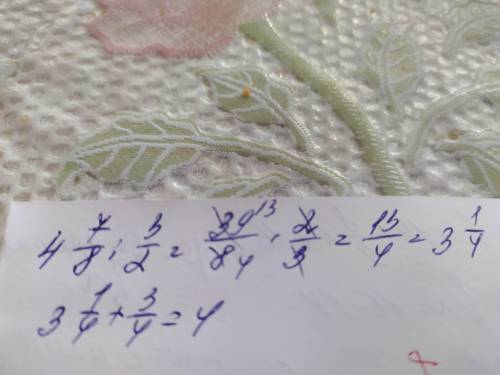 4 7/8 : 3/2 = 39 13/8 4 · 2/3 = 13/4 = 3 1/4
3 1/4 + 3/4 = 4